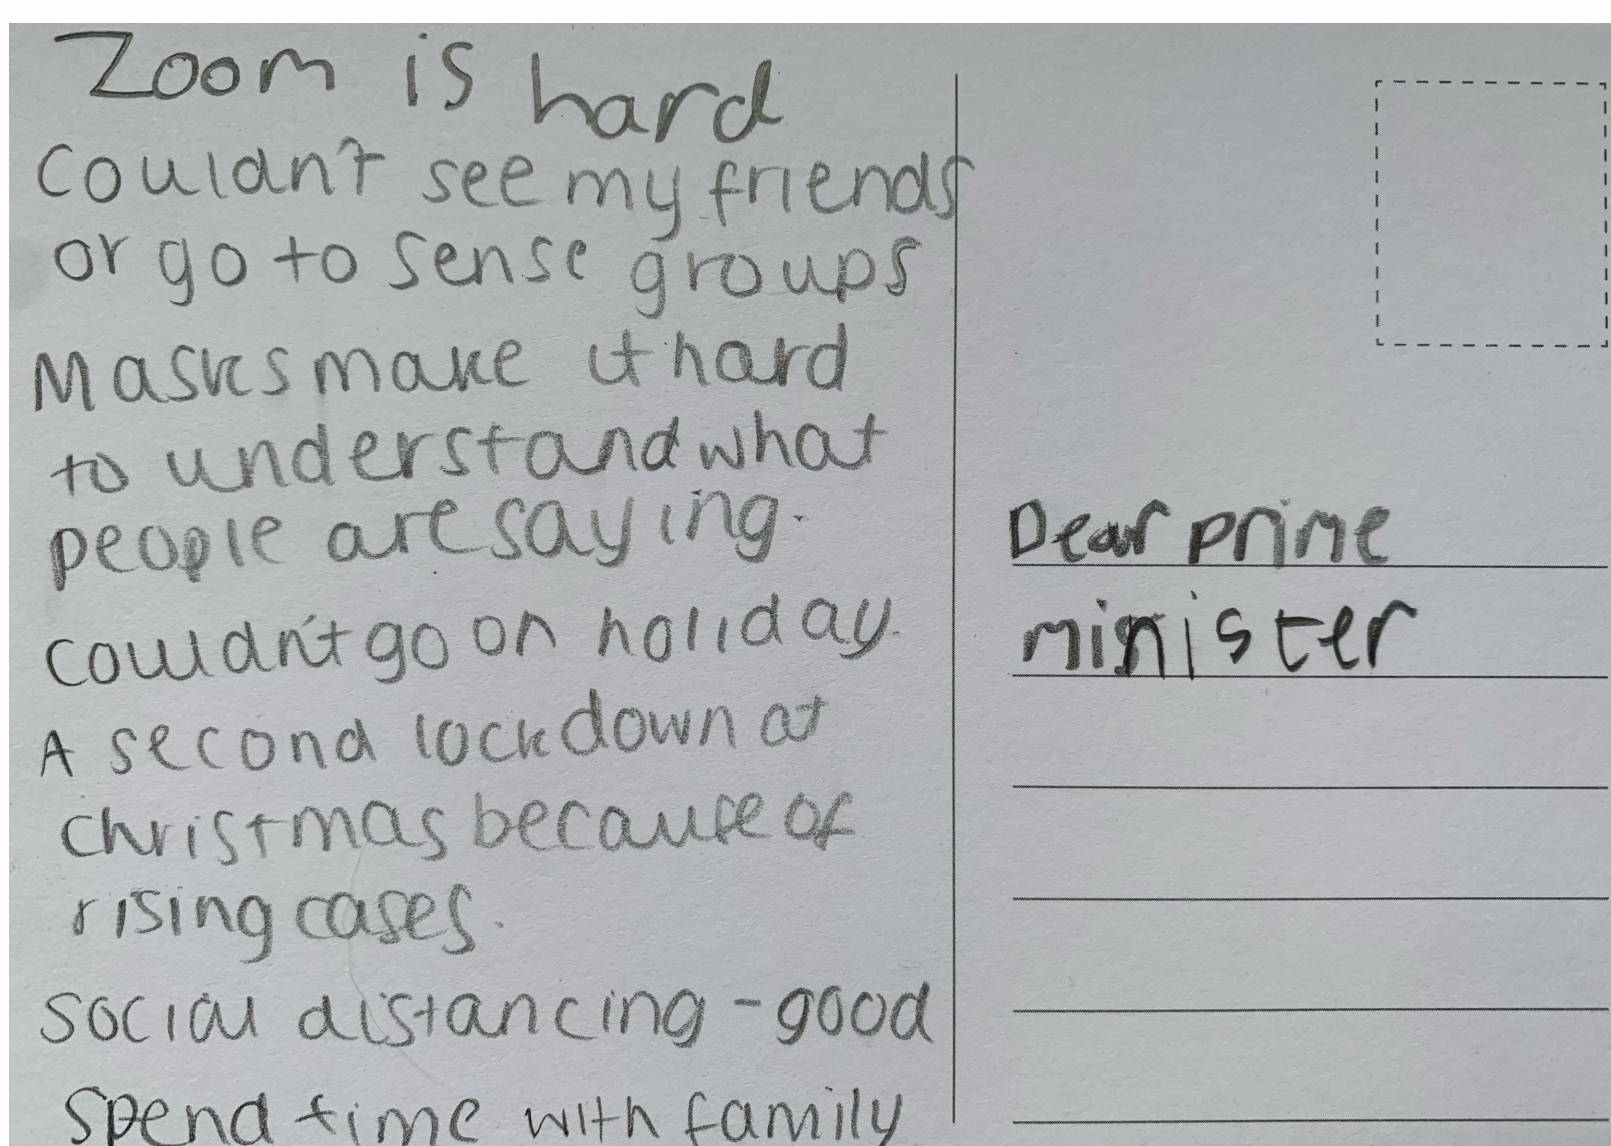 Zoom is hard
Couldn't see my friends
or go to sense groups
Masks make it hard
to understand what
people are saying.
Couldn't go on holiday.
A second lockdown at
christmas because of
rising cases.
Social distancing - good
Spend time with family
Dear prime
minister